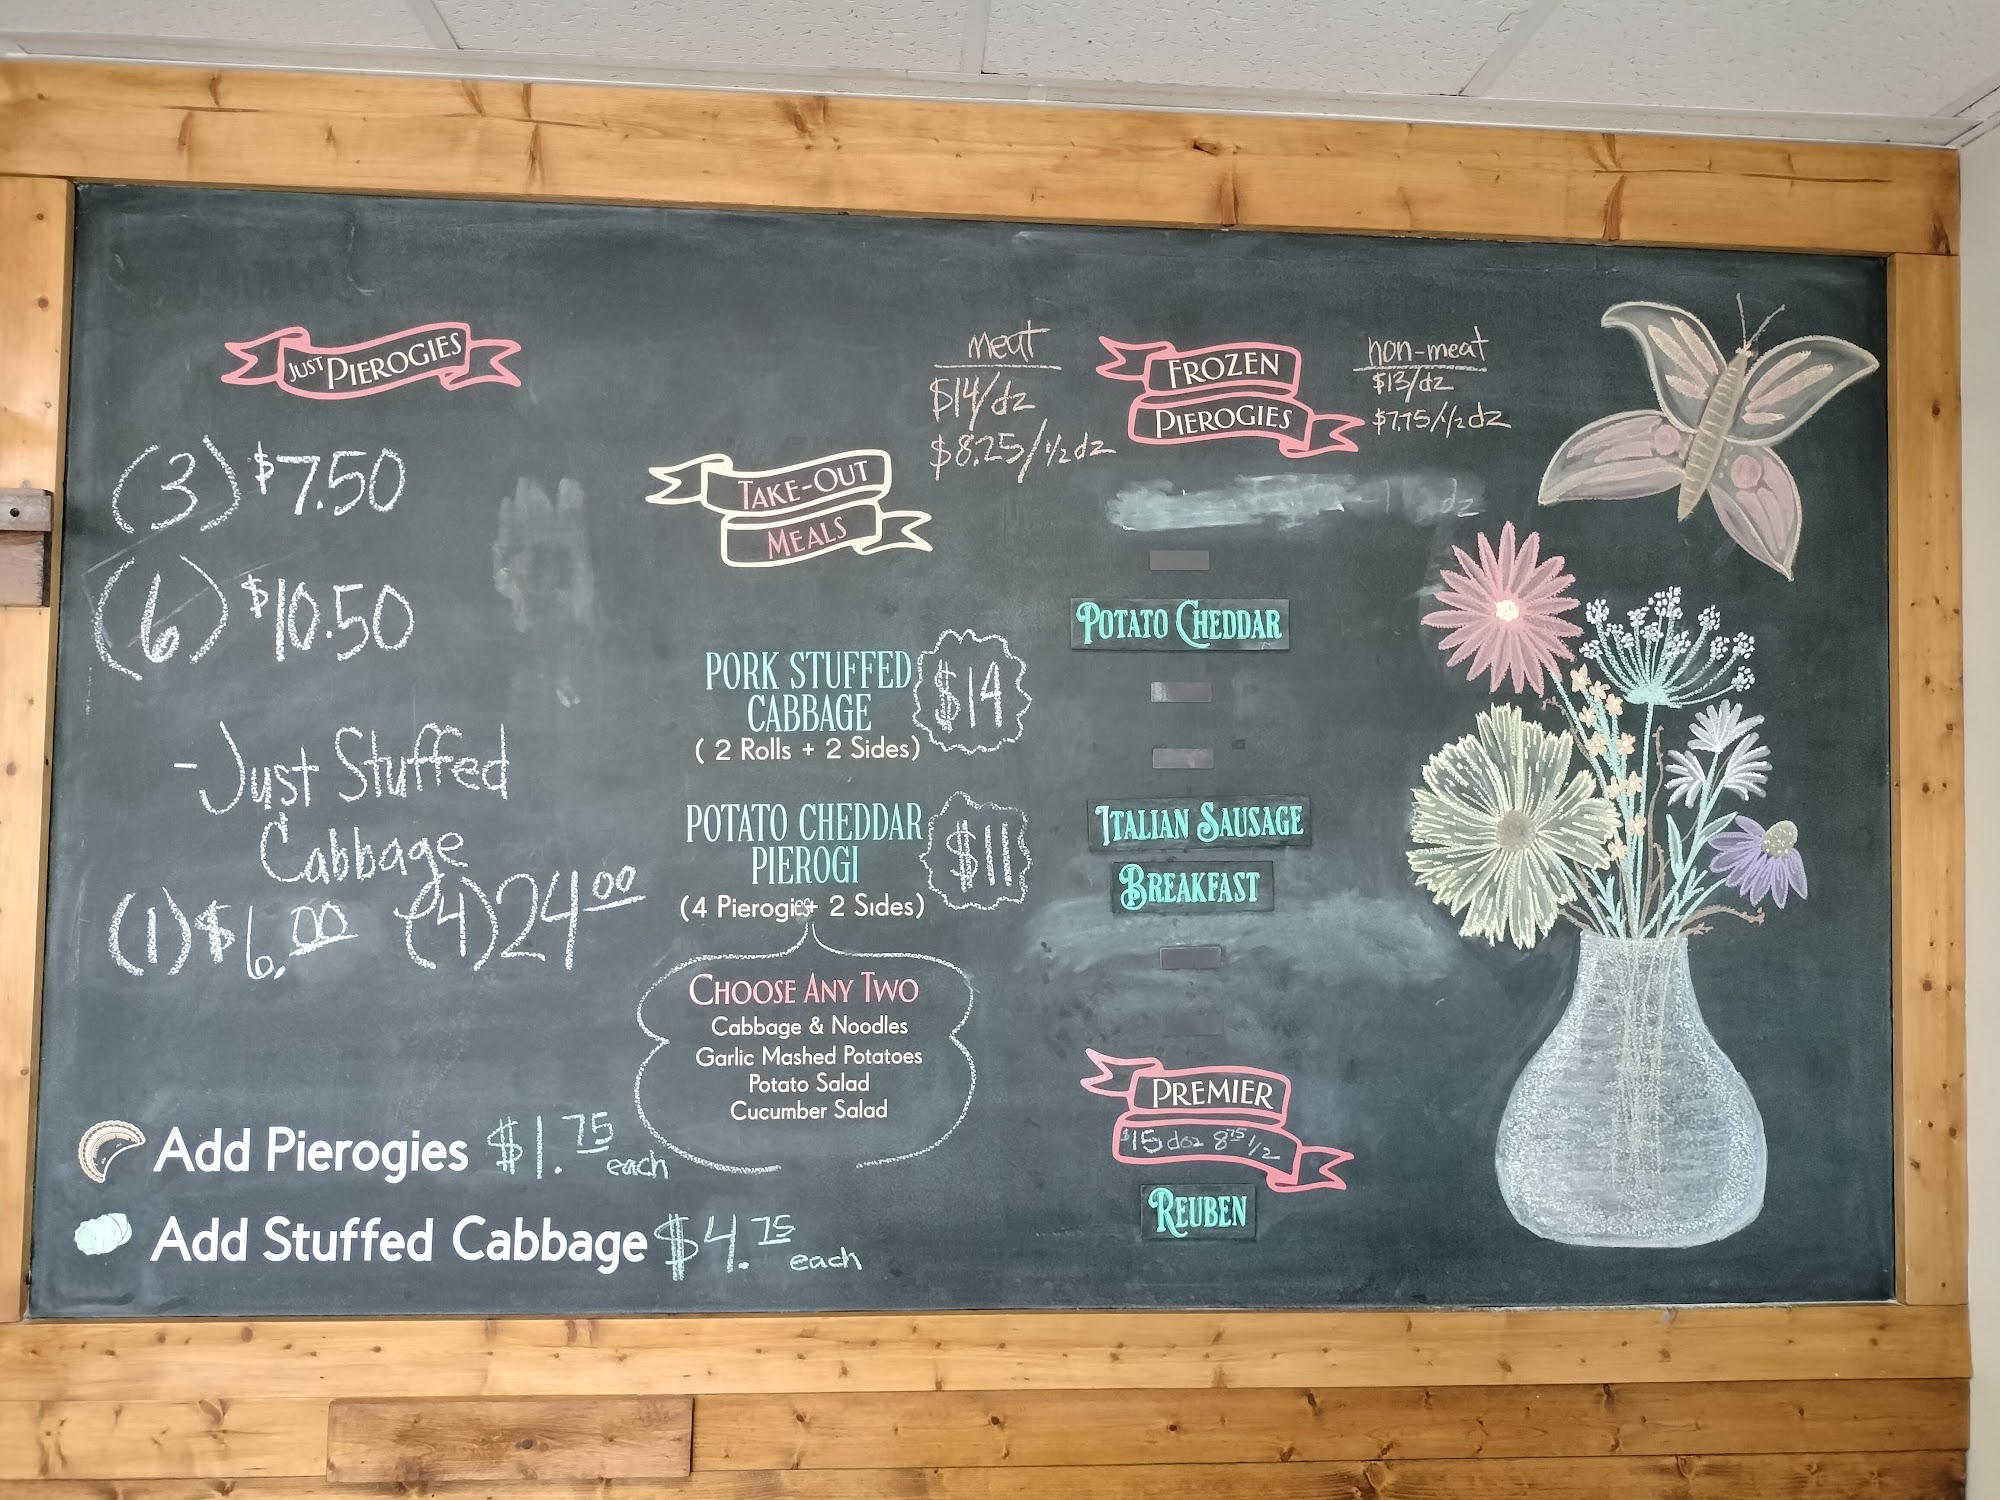 JUST PIEROGIES
(3) $7.50
(6) $10.50
-Just Stuffed
Cabbage
(1) $6.00 (4) 24.00
Add Pierogies $1.75 each
Add Stuffed Cabbage $4.75 each
TAKE-OUT
MEALS
PORK STUFFED
CABBAGE
$14
( 2 Rolls + 2 Sides)
POTATO CHEDDAR
PIEROGI
$11
(4 Pierogies+ 2 Sides)
CHOOSE ANY TWO
Cabbage & Noodles
Garlic Mashed Potatoes
Potato Salad
Cucumber Salad
meat
$14/dz
$8.25/½dz
FROZEN
PIEROGIES
non-meat
$13/dz
$7.75/½dz
POTATO CHEDDAR
ITALIAN SAUSAGE
BREAKFAST
PREMIER
$15 doz 8.75 1/2
REUBEN